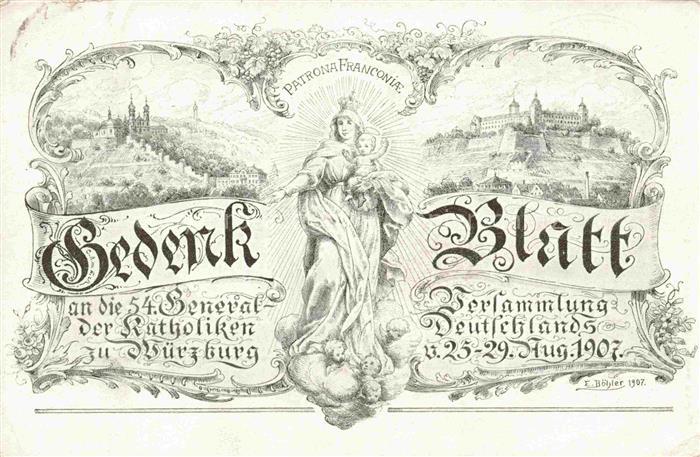 PATRONA FRANCONIÆ
Gedenk Blatt
an die 54. General- Versammlung
der Katholiken Deutschlands
zu Würzburg v. 25-29. Aug. 1907.
E. Böhler 1907.